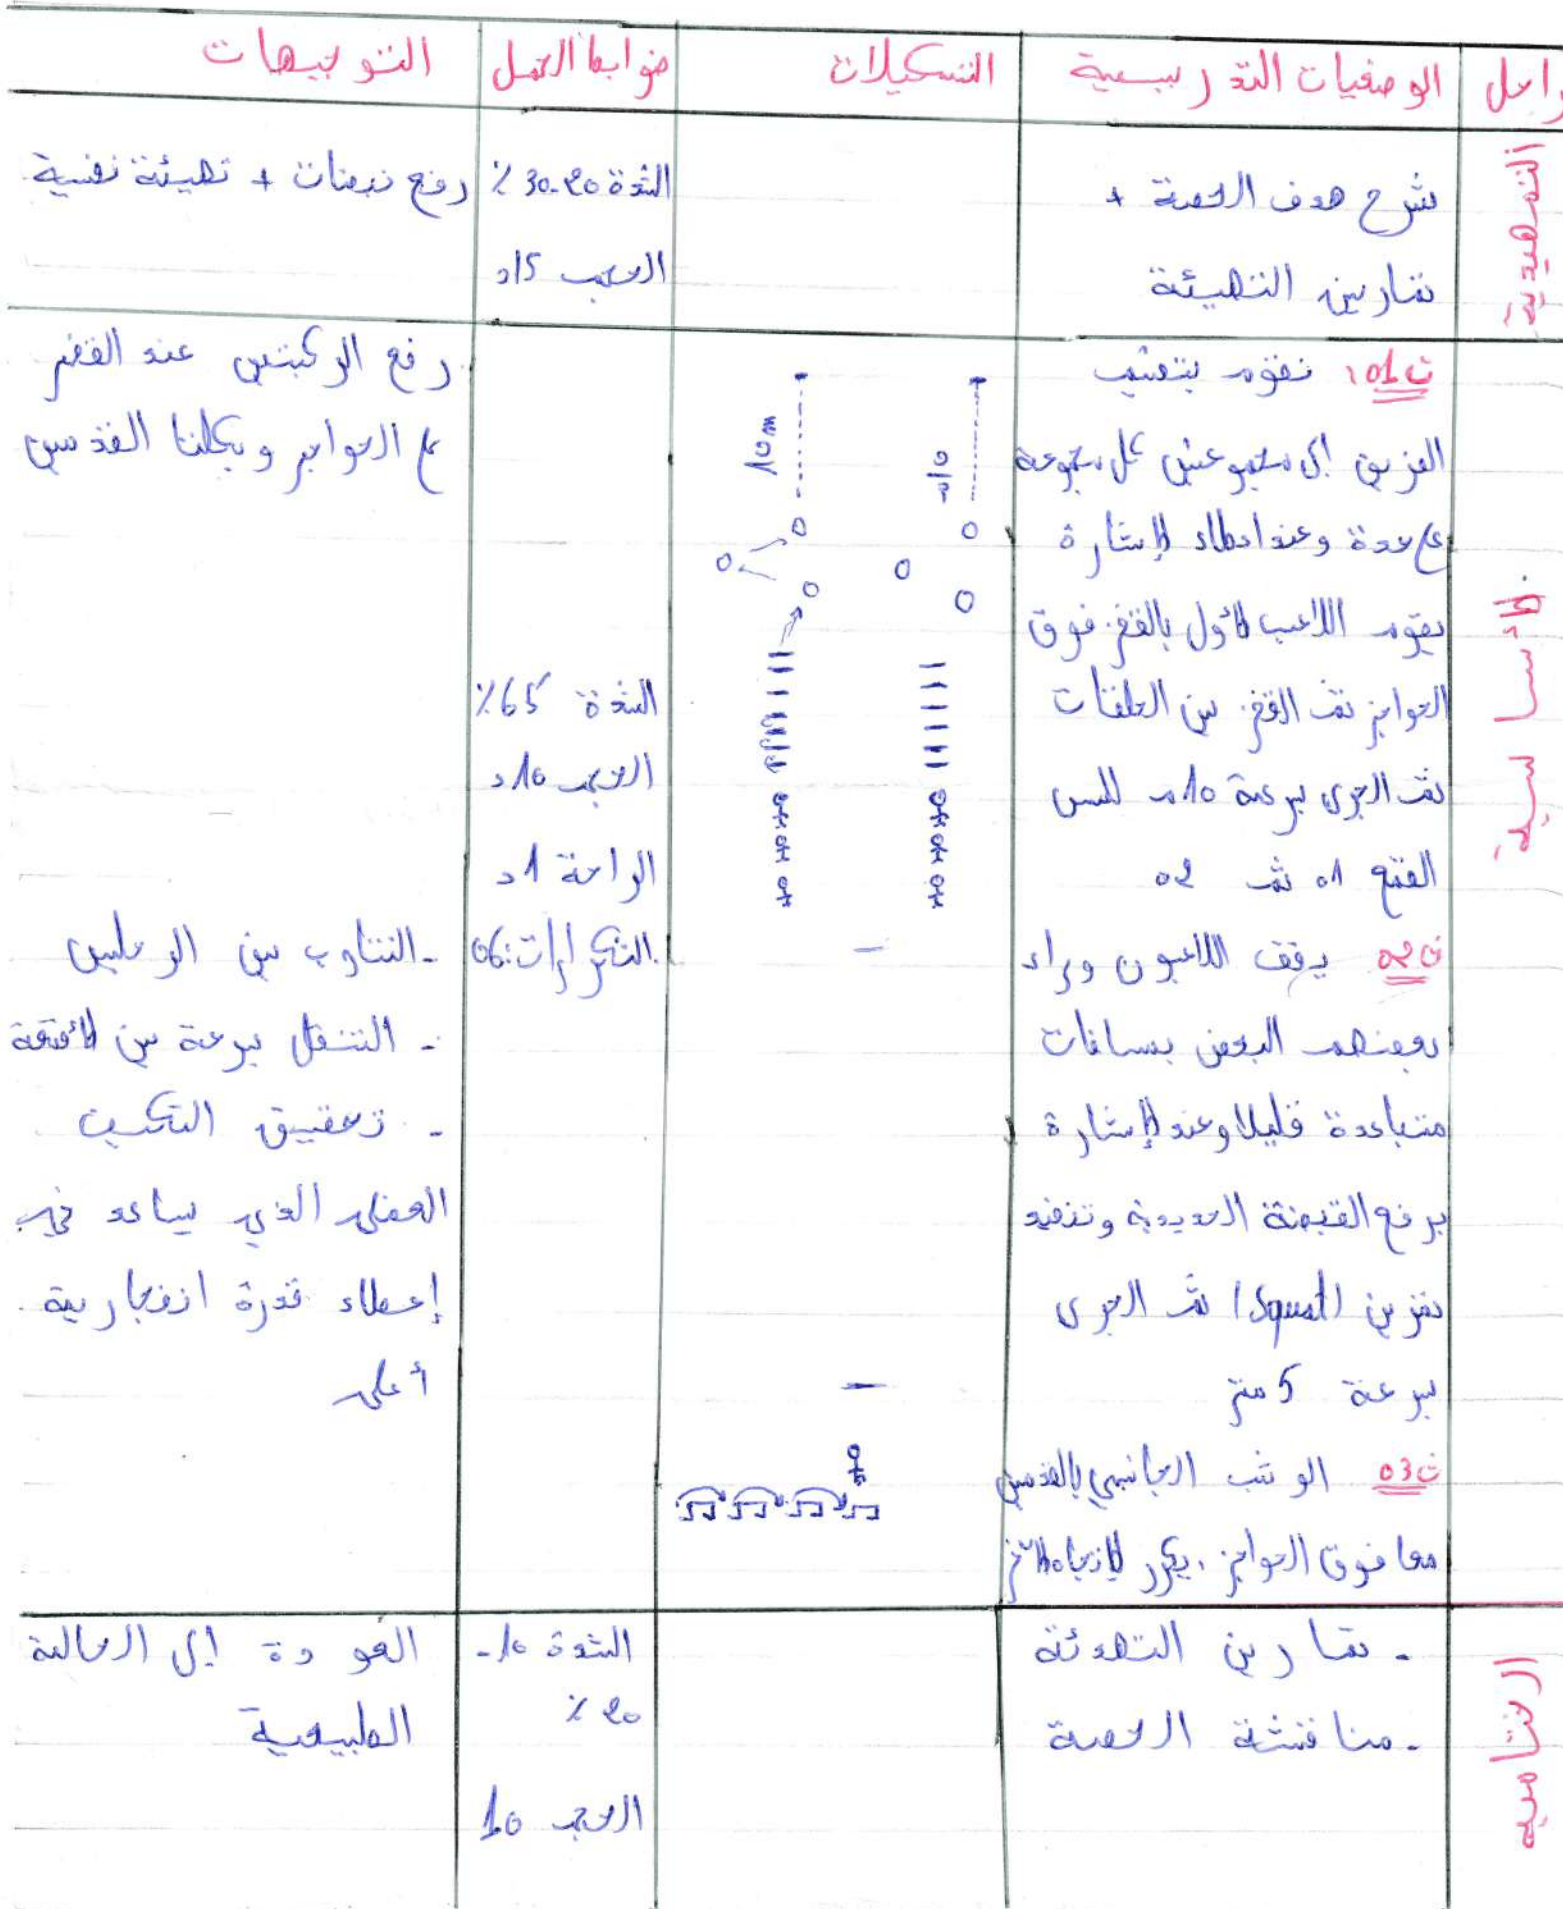 راحل
الوضعيات التدريبية
التشكيلات
ضوابط العمل
التوجيهات
التمهيدية
شرح هدف الحصة +
تمارين التهيئة
الشدة 20-30 %
الحجم 15د
رفع نبضات + تهيئة نفسية
الأساسية
ت01: نقوم بتقسيم
الفريق إلى مجموعتين كل مجموعة
على حدة وعند اعطاء الإشارة
يقوم اللاعب الأول بالقفز فوق
الحواجز ثم القفز بين الحلقات
ثم الجري بسرعة 10م للمس
القمع 01 ثم 02
ت02 يقف اللاعبون وراء
بعضهم البعض بمسافات
متباعدة قليلا وعند الإشارة
برفع القبضة الحديدية وتنفيذ
تمرين (Squat) ثم الجري
بسرعة 5 متر
ت03 الوثب الجانبي بالقدمين
معا فوق الحواجز. يكرر الاتجاه الآخر
10m
10م
الشدة 65%
الحجم 10د
الراحة 1د
التكرارات: 06
رفع الركبتين عند القفز
ع الحواجز وبكلتا القدمين
- التناوب بين الرجلين
- التنقل بسرعة بين الأقمعة
- تحقيق التكيف
العضلي الذي يساعد في
إعطاء قدرة انفجارية
أعلى
الختامية
- تمارين التهدئة
- مناقشة الحصة
الشدة 10-
20 %
الحجم 10
العودة إلى الحالة
الطبيعية